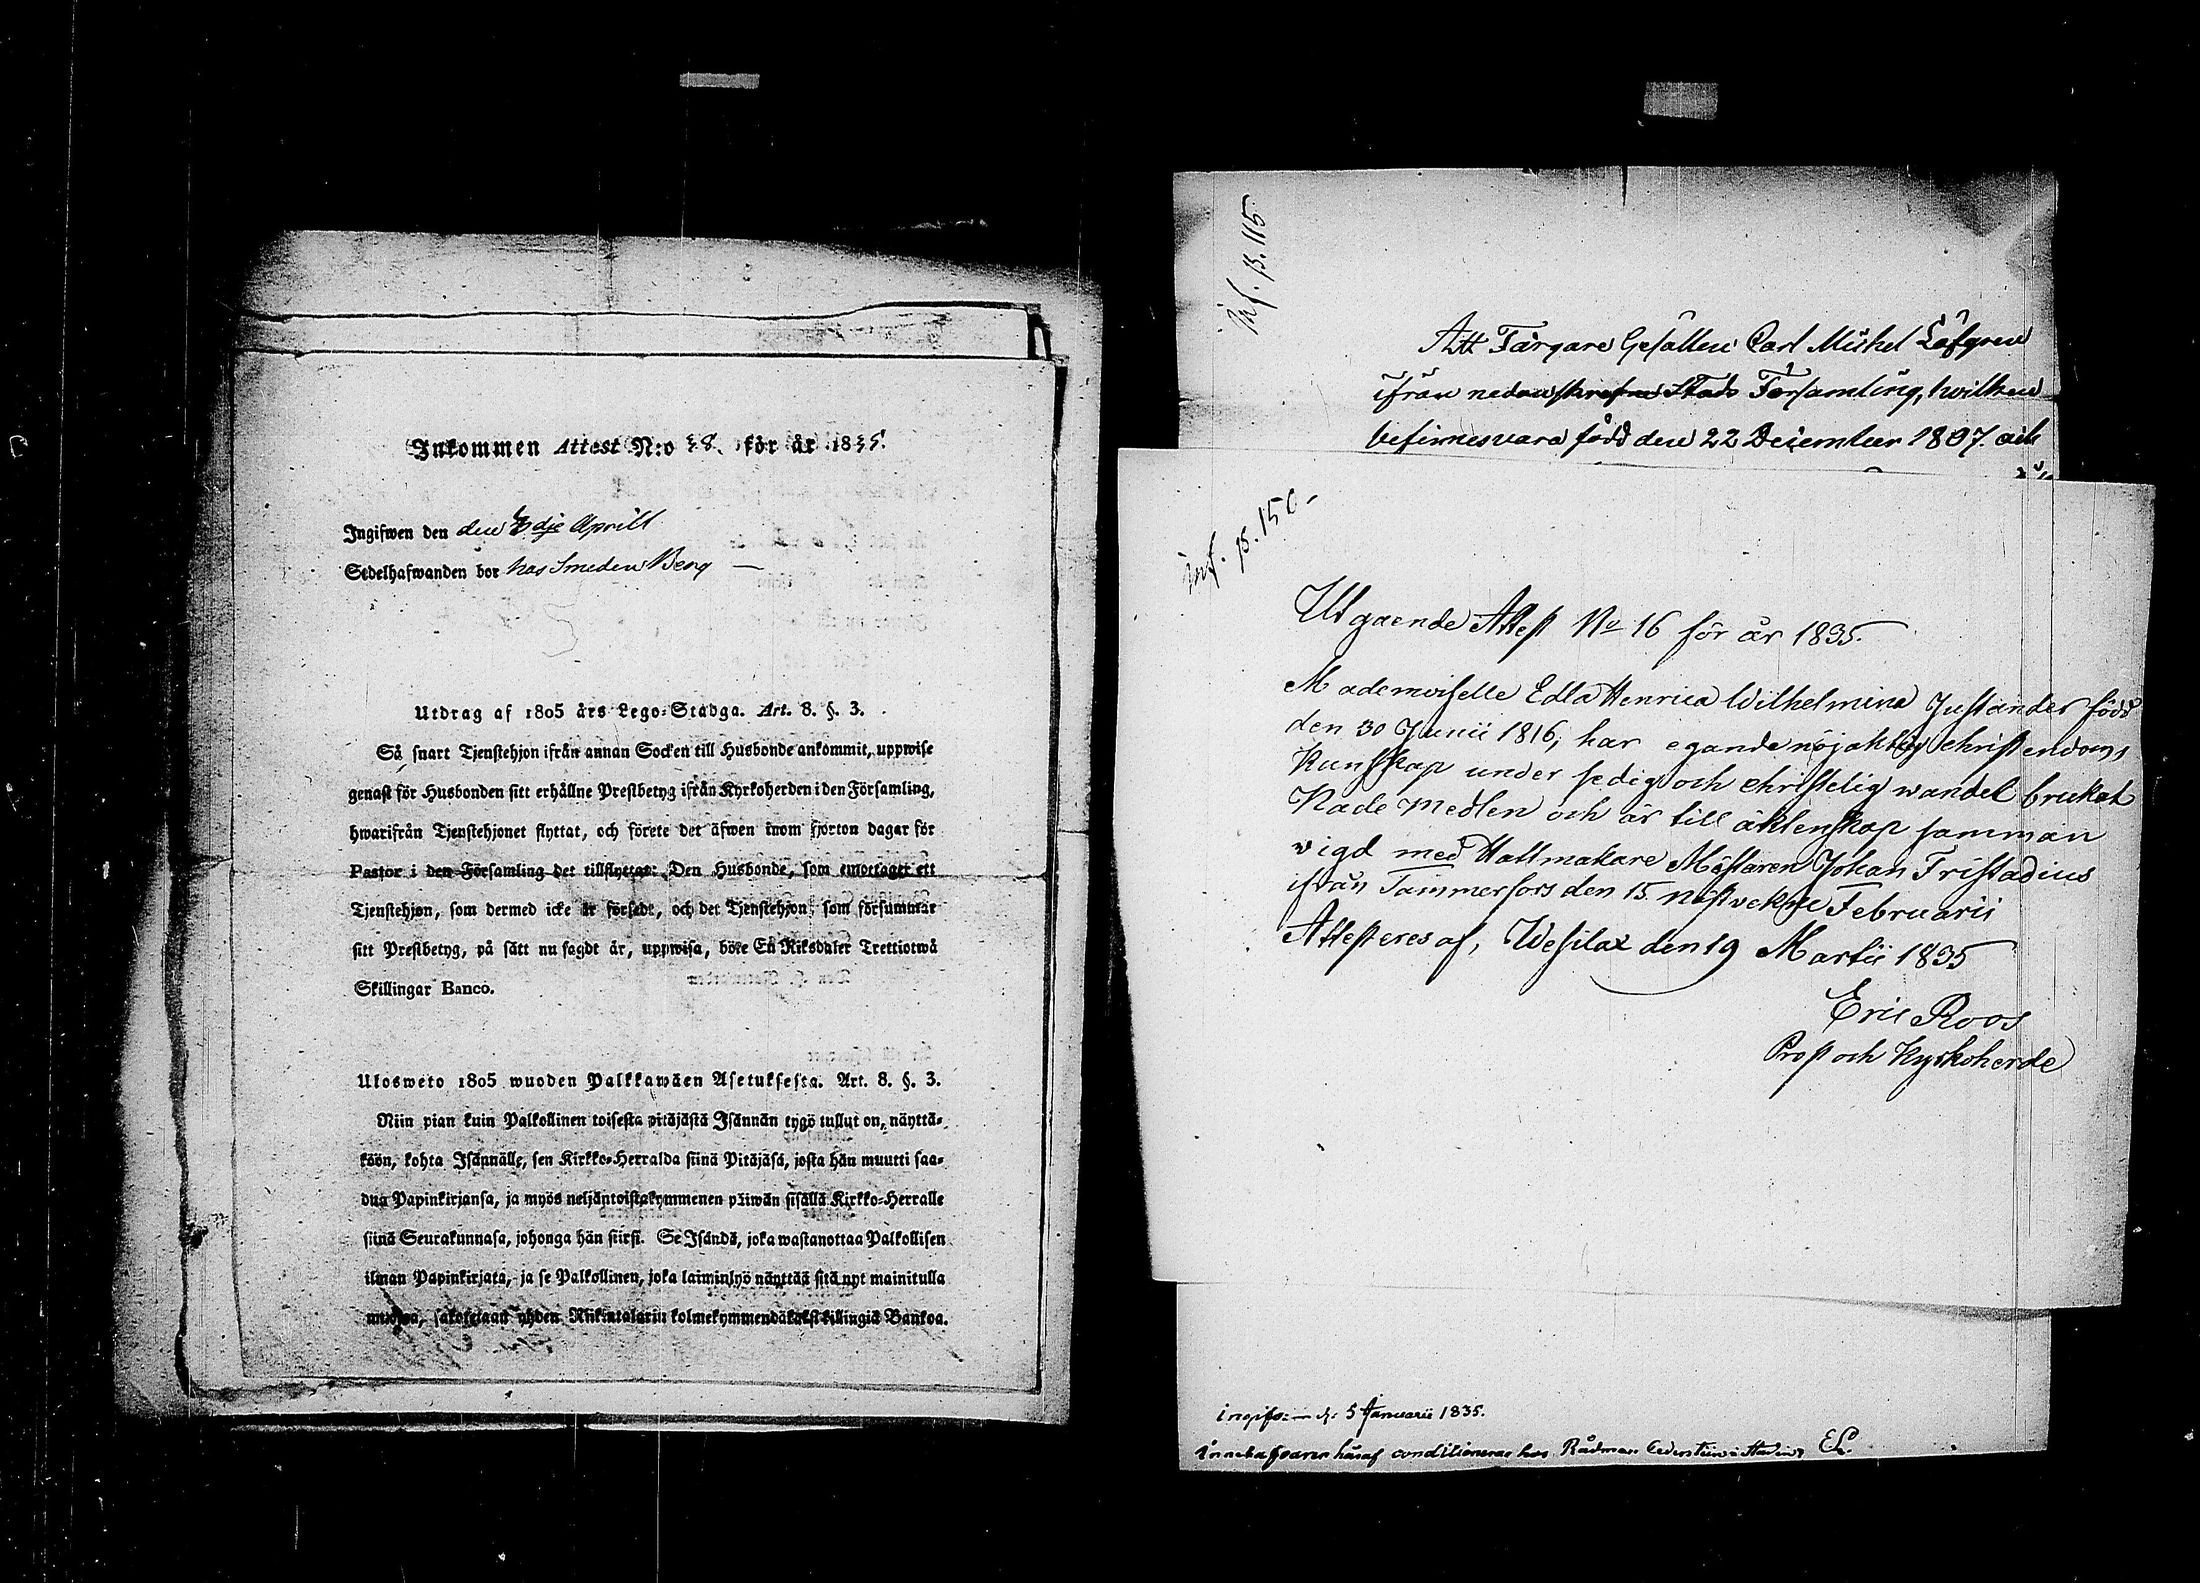 Inkommen Attest N:o 38. för år 1835.
Ingifwen den den 3dje Aprill
Sedelhafwanden bor hos Smeden Berg —
Utdrag af 1805 års Lego-Stadga. Art. 8. §. 3.
Så snart Tjenstehjon ifrån annan Socken till Husbonde ankommit, uppwise
genast för Husbonden sitt erhållne Prestbetyg ifrån Kyrkoherden i den Församling,
hwarifrån Tjenstehjonet flyttat, och förete det äfwen inom fjorton dagar för
Pastor i den Församling det tillflyttat: Den Husbonde, som emottager ett
Tjenstehjon, som dermed icke är försedt, och det Tjenstehjon, som försummar
sitt Prestbetyg, på sätt nu sagdt är, uppwisa, böte En Riksdaler Trettiotwå
Skillingar Banco.
Ulosweto 1805 wuoden Palkkawäen Asetuksesta. Art. 8. §. 3.
Niin pian kuin Palkollinen toisesta pitäjästä Isännän tygö tullut on, näyttä-
köön, kohta Isännälle, sen Kirkko-Herralda siinä Pitäjäsä, josta hän muutti saa-
dun Papinkirjansa, ja myös neljäntoistakymmenen päiwän sisällä Kirkko-Herralle
siinä Seurakunnasa, johonga hän siirsi. Se Isändä, joka wastanottaa Palkollisen
ilman Papinkirjata, ja se Palkollinen, joka laiminlyö näyttää sitä nyt mainitulla
muotoa, sakotetaan yhden Riikintalarin kolmekymmendäkaksi killingiä Bankoa.
inf. p. 115.
Att Färgare Gesällen Carl Michel Löfgren
ifrån nedanskrefne Stads Församling, hwilken
befinnes vara född den 22 December 1807. och
inf. p. 150.
Utgaende Attest No 16 för år 1835.
Mademoiselle Edla Henrica Wilhelmina Justander född
den 30 Junii 1816, har egande nöjaktig christendoms
Kunskap under sedig och christelig wandel brukat
Nademedlen och är till äktenskap samman
vigd med Hattmakare Mästaren Johan Fristadius
ifrån Tammerfors den 15 nästvekne Februarii
Attesteres af, Wesilax den 19 Martii 1835
Eric Roos
Prost och Kyrkoherde
ingifv: — d: 5 Januarii 1835.
Innehafvaren häraf conditionerar hos Rådman i Staden EL.